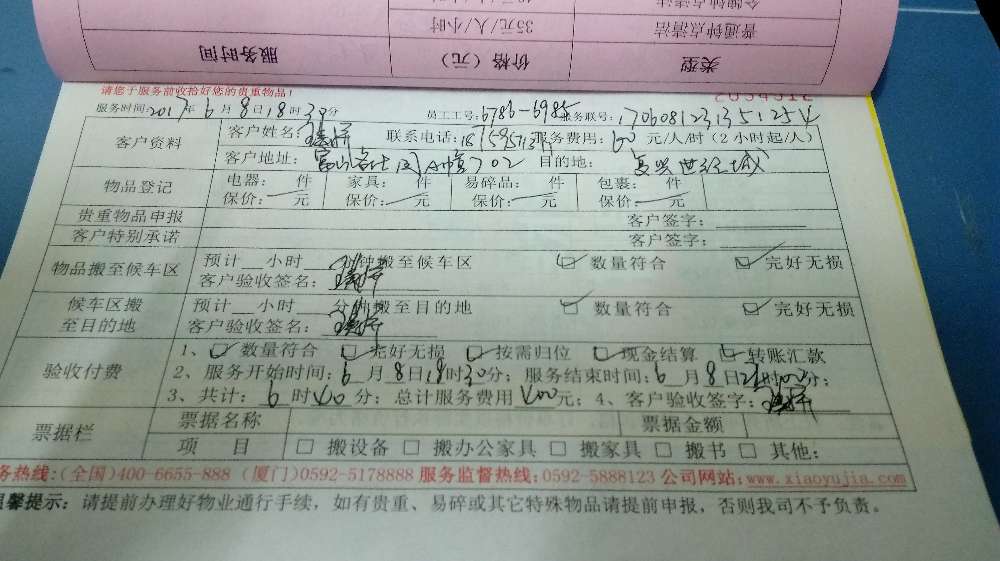 普通钟点清洁 35元/人/小时
类型 价格（元） 服务时间
请您于服务前收拾好您的贵重物品！
服务时间:2017年6月8日18时30分 员工工号:6786-6985 服务联号:1706081231351254
客户资料 客户姓名: 联系电话: 服务费用:60元/人/时（2小时起/人）
客户地址: 702 目的地:
物品登记 电器: 件 家具: 件 易碎品: 件 包裹: 件
保价: 元 保价: 元 保价: 元 保价: 元
贵重物品申报 客户签字:
客户特别承诺 客户签字:
物品搬至候车区 预计__小时__分钟搬至候车区 ☑ 数量符合 ☑ 完好无损
客户验收签名:
候车区搬至目的地 预计__小时__分钟搬至目的地 ☑ 数量符合 ☑ 完好无损
客户验收签名:
验收付费 1、☑ 数量符合 ☑ 完好无损 ☑ 按需归位 ☑ 现金结算 ☑ 转账汇款
2、服务开始时间:6月8日18时30分；服务结束时间:6月8日21时00分；
3、共计:6时 分；总计服务费用 元；4、客户验收签字:
票据栏 票据名称 票据金额
项 目 □ 搬设备 □ 搬办公家具 □ 搬家具 □ 搬书 □ 其他:
务热线:(全国)400-6655-888 (厦门)0592-5178888 服务监督热线:0592-5888123 公司网站:www.xiaoyujia.com
温馨提示: 请提前办理好物业通行手续，如有贵重、易碎或其它特殊物品请提前申报，否则我司不予负责。